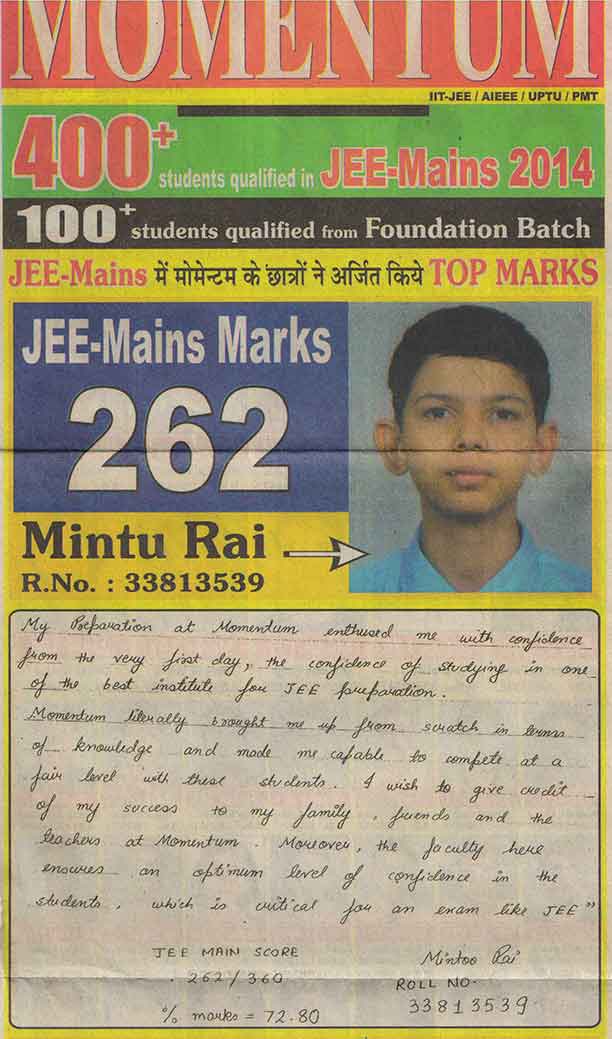 MOMENTUM
IIT-JEE / AIEEE / UPTU / PMT
400+ students qualified in JEE-Mains 2014
100+ students qualified from Foundation Batch
JEE-Mains में मोमेन्टम के छात्रों ने अर्जित किये TOP MARKS
JEE-Mains Marks
262
Mintu Rai
R.No. : 33813539
My Preparation at Momentum enthused me with confidence
from the very first day, the confidence of studying in one
of the best institute for JEE preparation.
Momentum literally brought me up from scratch in terms
of knowledge and made me capable to compete at a
fair level with these students. I wish to give credit
of my success to my family, friends and the
teachers at Momentum. Moreover, the faculty here
ensures an optimum level of confidence in the
students, which is critical for an exam like JEE”
JEE MAIN SCORE
262/360
% marks = 72.80
Mintoo Rai
ROLL NO.
33813539